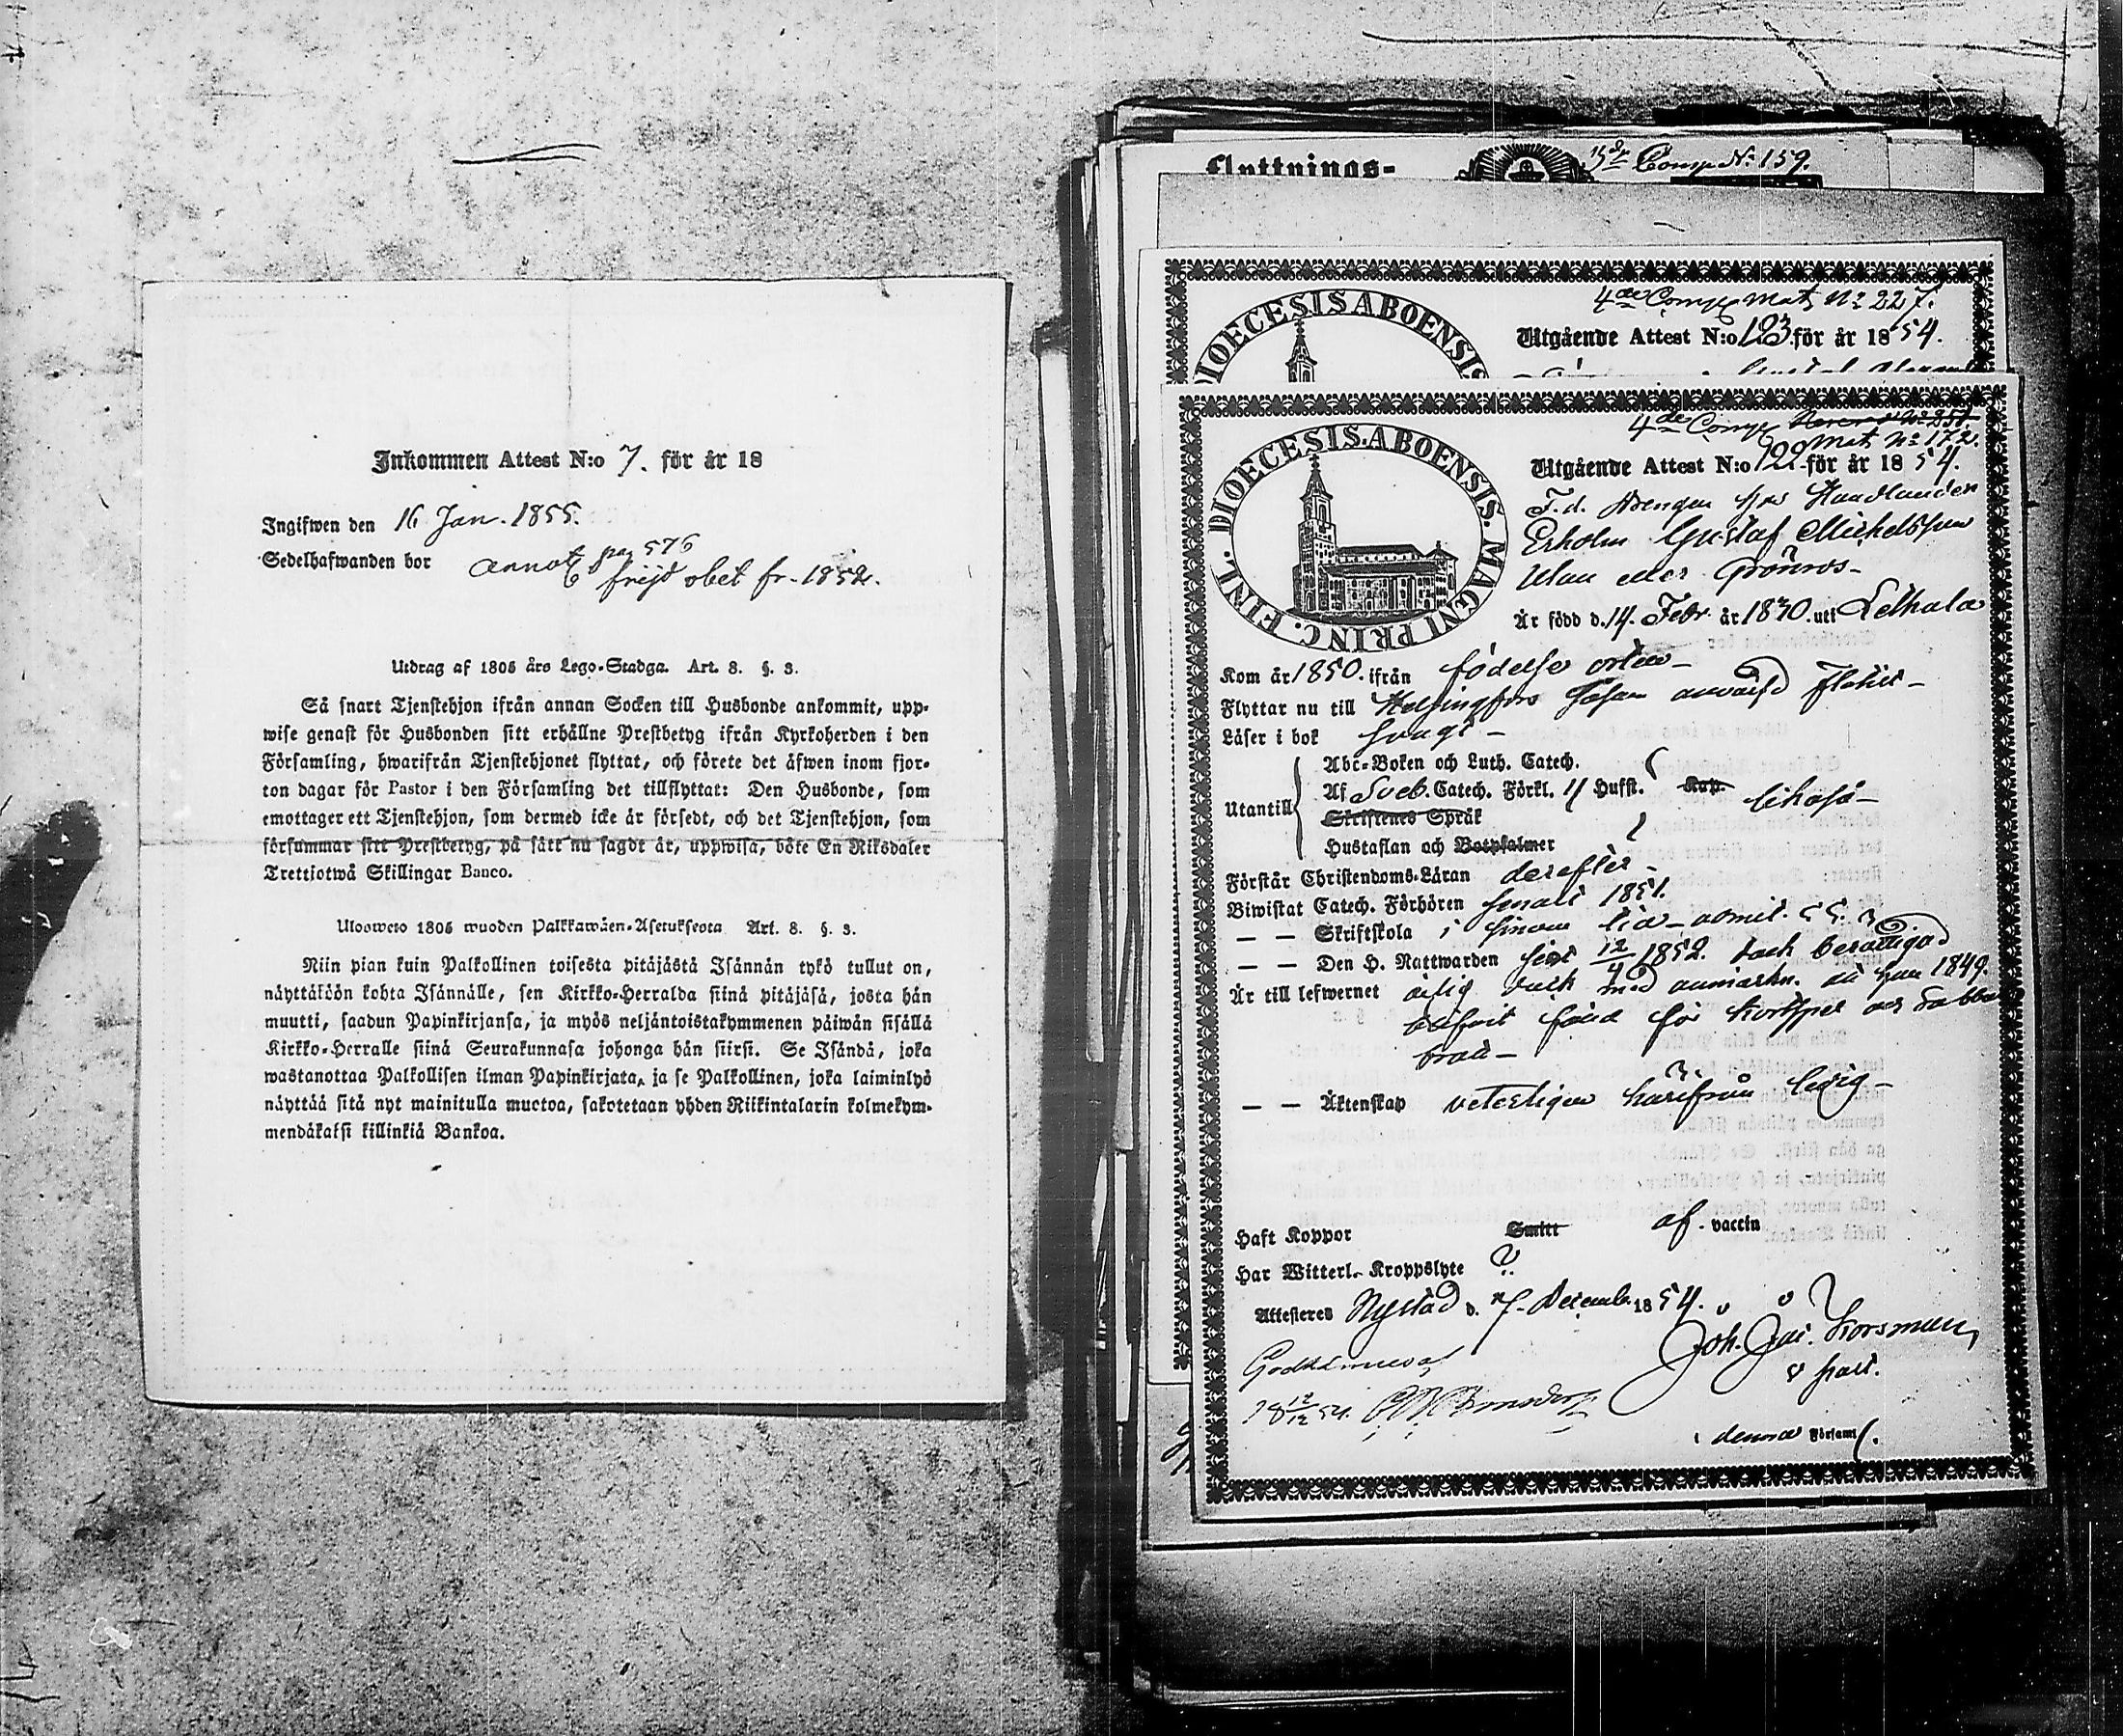 Inkommen Attest N:o 7. för år 18
Ingifwen den 16 Jan. 1855.
Sedelhafwanden bor annot pag 576
frejd obet fr. 1852.
Utdrag af 1805 års Lego-Stadga. Art. 8. §. 3.
Så snart Tjenstehjon ifrån annan Socken till Husbonde ankommit, upp-
wise genast för Husbonden sitt erhållne Prestbetyg ifrån Kyrkoherden i den
Församling, hwarifrån Tjenstehjonet flyttat, och förete det äfwen inom fjor-
ton dagar för Pastor i den Församling det tillflyttat: Den Husbonde, som
emottager ett Tjenstehjon, som dermed icke är försedt, och det Tjenstehjon, som
försummar sitt Prestbetyg, på sätt nu sagdt är, uppwisa, böte En Riksdaler
Trettiotwå Skillingar Banco.
Ulosweto 1805 wuoden Palkkawäen-Asetuksesta Art. 8. §. 3.
Niin pian kuin Palkollinen toisesta pitäjästä Isännän tykö tullut on,
näyttäköön kohta Isännälle, sen Kirkko-Herralda siinä pitäjäsä, josta hän
muutti, saadun Papinkirjansa, ja myös neljäntoistakymmenen päiwän sisällä
Kirkko-Herralle siinä Seurakunnasa johonga hän siirsi. Se Isändä, joka
wastanottaa Palkollisen ilman Papinkirjata, ja se Palkollinen, joka laiminlyö
näyttää sitä nyt mainitulla muotoa, sakotetaan yhden Riikintalarin kolmekym-
mendäkaksi killinkiä Bankoa.
Flyttnings-
Comp N: 159.
4de Comp Mat N: 227.
DIOECESIS ABOENSIS
Utgående Attest N:o 123 för år 1854.
4de Comp
Mat N: 172.
DIOECESIS ABOENSIS. MAGNI PRINC. FINL.
Utgående Attest N:o 122 för år 1854.
F. d. Drengen hos Handlanden
Erholm Gustaf Michelsson
Ulan eller Grönros
Är född d. 14. Febr. år 1830. uti Lethala
Kom år 1850. ifrån födelse orten
Flyttar nu till Helsingfors
Läser i bok svagt
Abc-Boken och Luth. Catech.
Utantill Af Sveb. Catech. Förkl. 11 Hufst. Kap. likaså
Skriftenes Språk
Hustaflan och Botpsalmer
Förstår Christendoms-Läran derefter
Biwistat Catech. Förhören senast 1851.
— — Skriftskola i sinom tid admit.
— — Den H. Nattwarden sist 12/4 1852.
Är till lefwernet med anmärkn. 1849.
för
— — Äktenskap veterligen härifrån ledig
Haft Koppor Smitt af vaccin
Har Witterl. Kroppslyte ?
Attesteres Nystad d. 7 Decemb. 1854.
Joh. Jac. Korsman
v past.
Godkännes af
18 12/12 54.
i denna Församl.